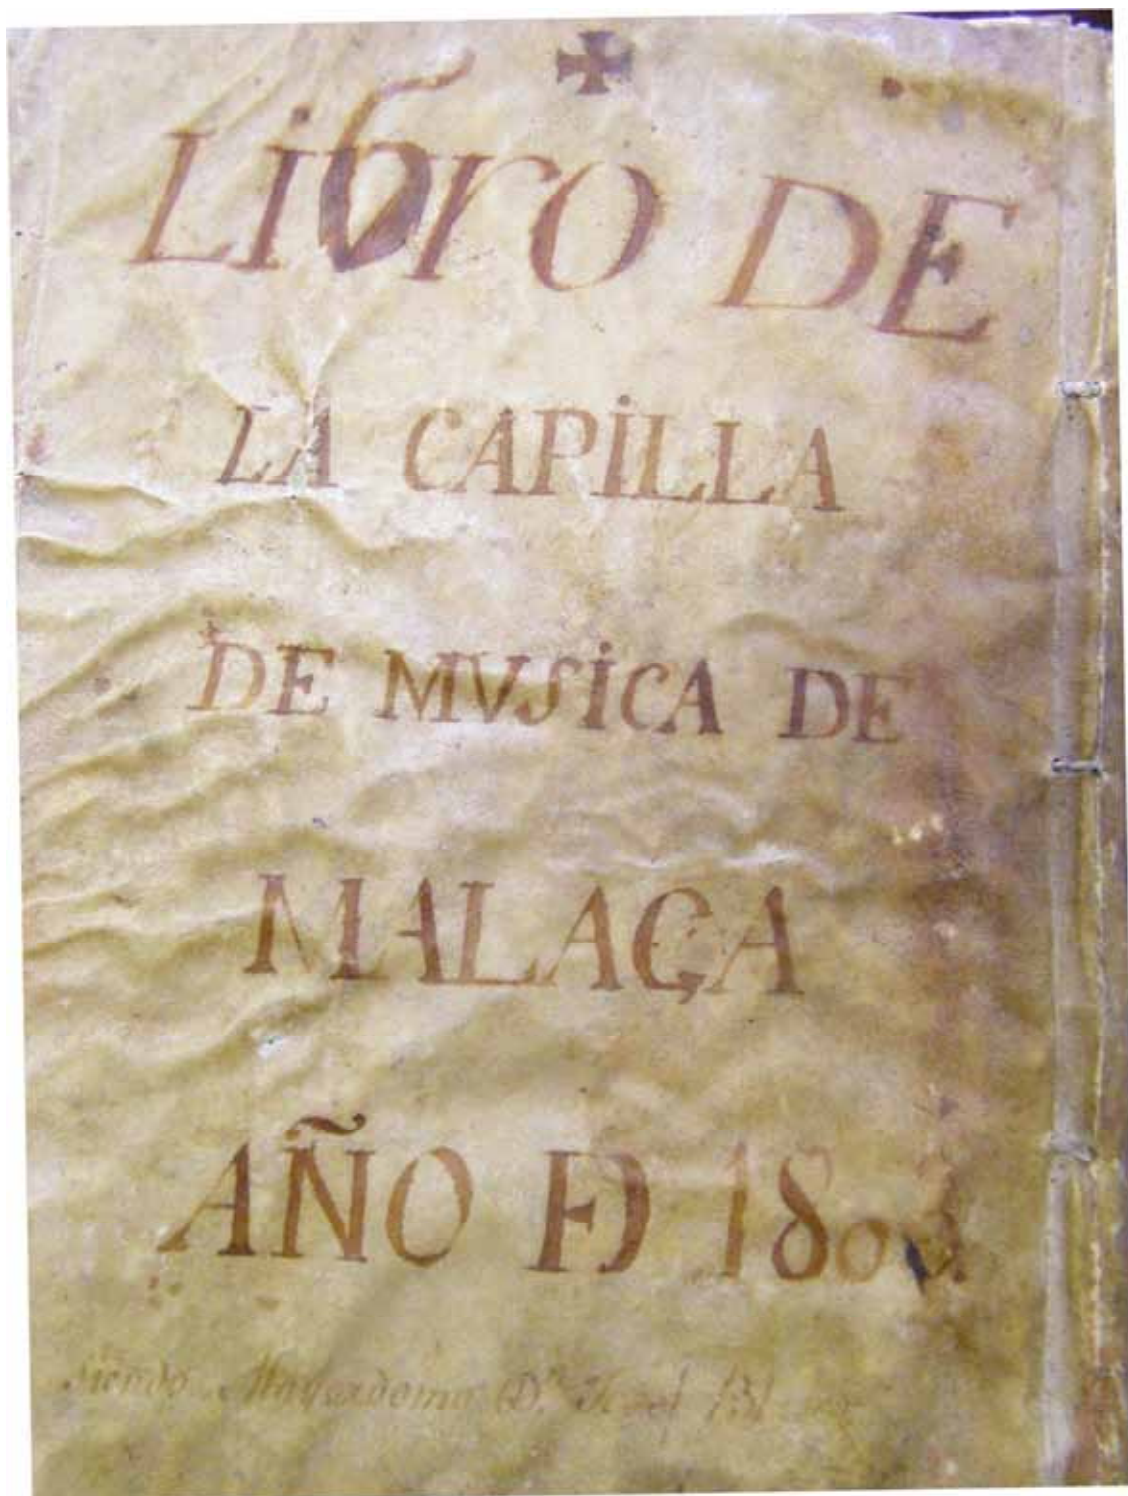 LIBRO DE
LA CAPILLA
DE MVSICA DE
MALAGA
AÑO DE
siendo Mayordomo Dn.